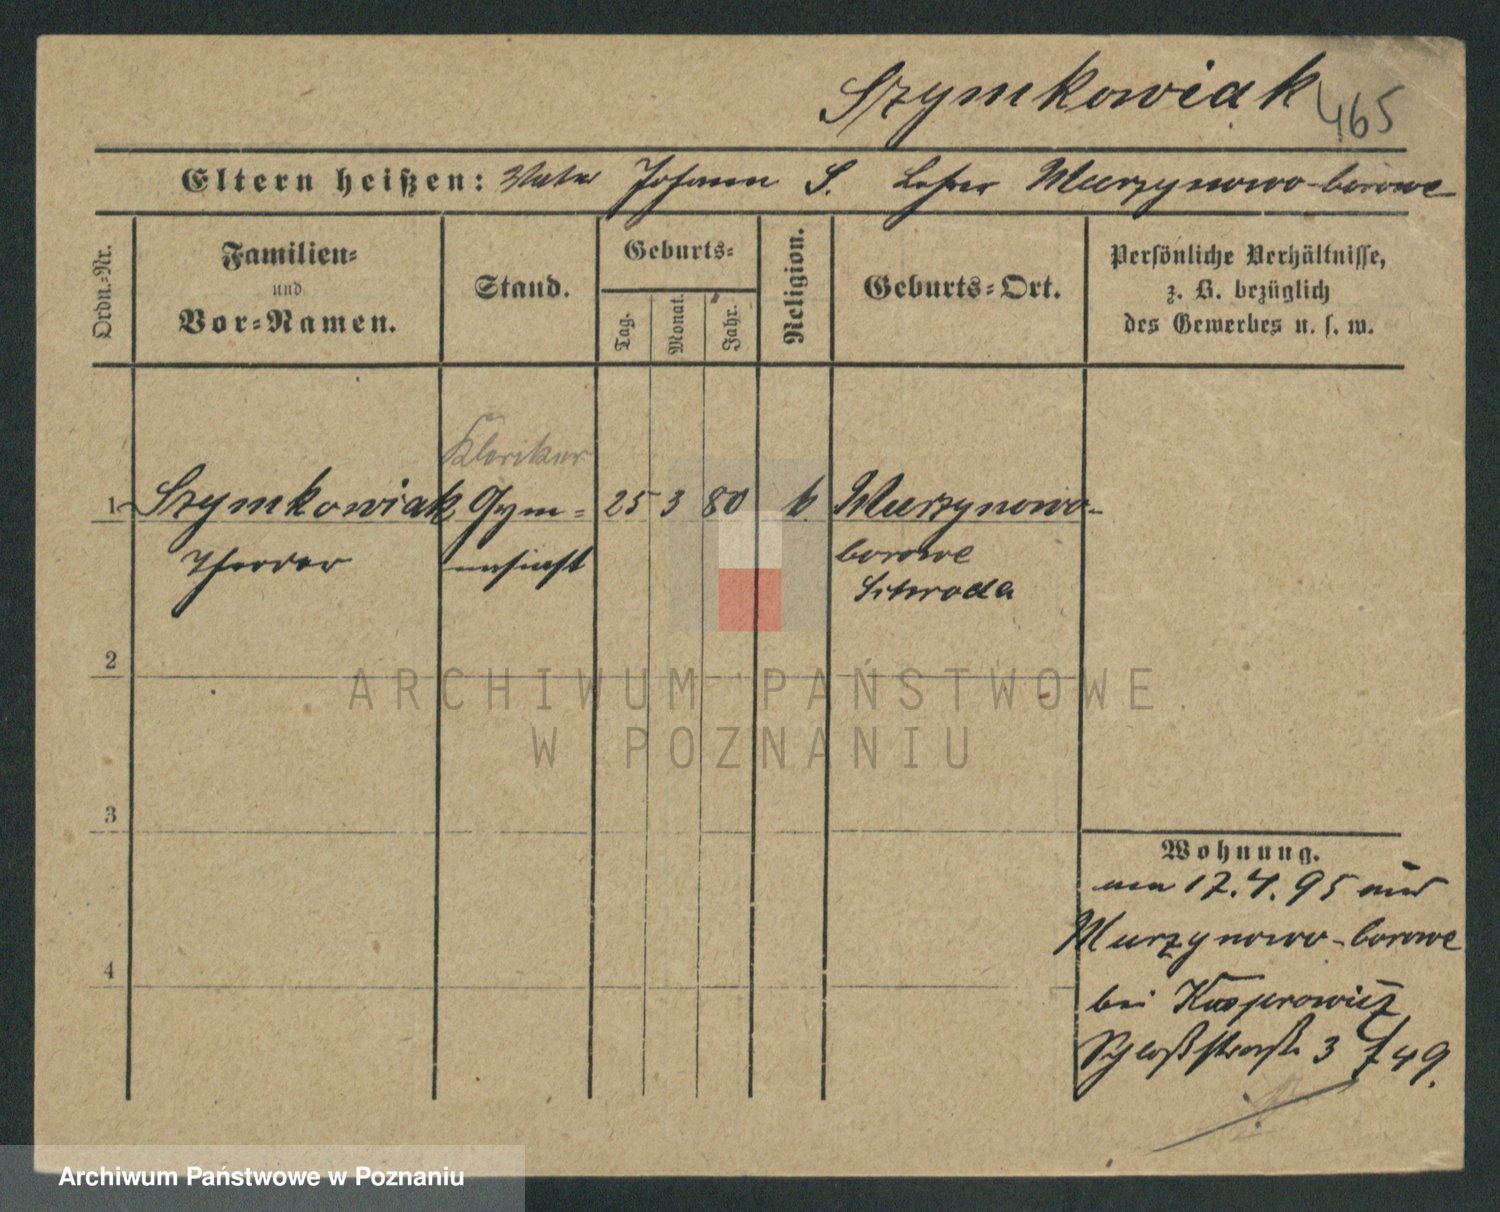 Szymkowiak 465
Eltern heißen: Vater Johann S. Lehrer Murzynowo-borowe
Ordn.-Nr.
Familien-
und
Vor-Namen.
Stand.
Geburts-
Tag.
Monat.
Jahr.
Religion.
Geburts-Ort.
Persönliche Verhältnisse,
z. B. bezüglich
des Gewerbes u. s. w.
Kleriker
1 Szymkowiak Gym- 25 3 80 k Murzynowo-
Theodor nasiast borowe
Schroda
2
ARCHIWUM PAŃSTWOWE
W POZNANIU
3
Wohnung.
17.4.95 aus
Murzynowo-borowe
4
bei Kasprowicz
Schloßstraße 3 49.
Archiwum Państwowe w Poznaniu